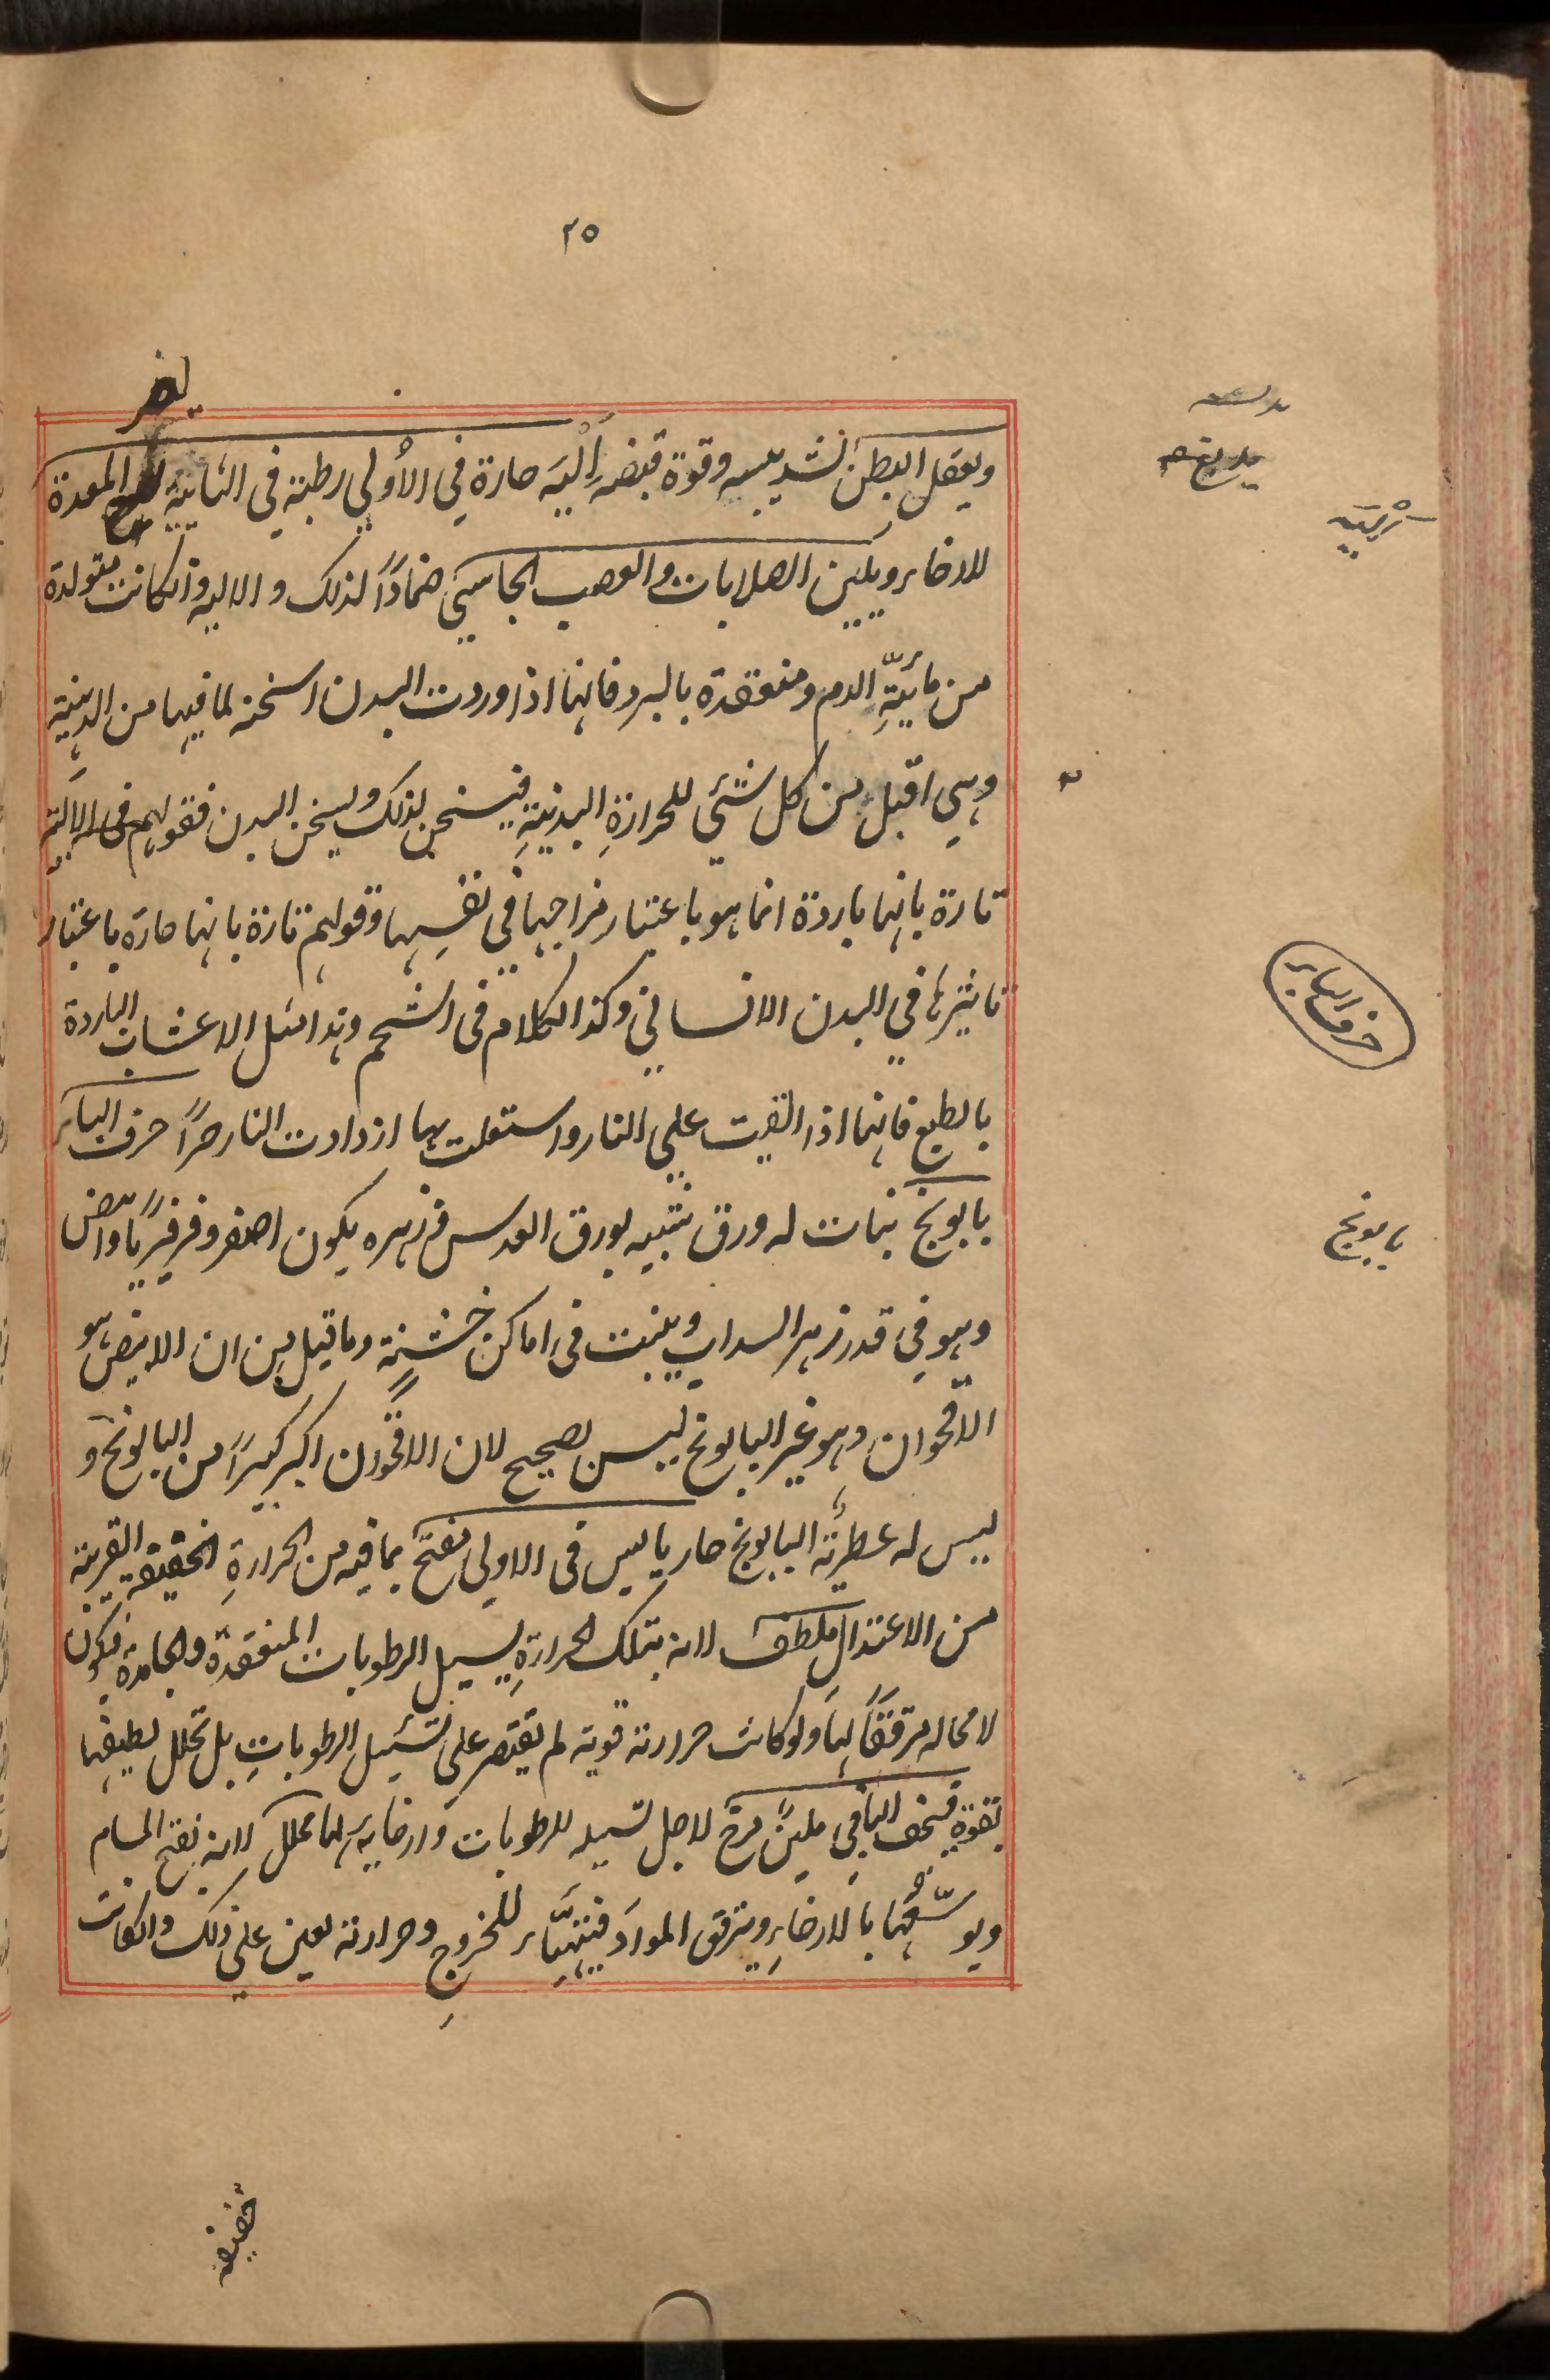 ٢٥
يضر
ويعقل البطن لشدة يبسه وقوة قبضه اَلْيَه حارة في الأولي رطبة في الثانية المعدة
للارخاير ويلين الصلابات والعصب الجاسي ضمادًا لذلك والاليه وانكانت متولدة
من مائيّةِ الدم ومنعقدة بالبرد فانها اذا وردت البدن اسخنه لما فيها من الدهنية
وهي اقبل من كل شئي للحرارةِ البدنيةِ فيسخن بذلك ويسخن البدن فقولهم في الالية
تارة بانها باردة انما هو باعتبار مزاجها في نفسها وقولهم تارة بانها حارة باعتبار
تاثيرها في البدن الانساني وكذا الكلام في الشحم وهذا مثل الاعشاب الباردة
بالطبع فانها اذا القيت علي النار واستعلت بها ازدادت النار حرًا حرف الباء
بابونج نبات له ورق شبيه بورق العدس وزهره يكون اصفر وفرفيريًا وابيض
وهو في قدر زهر السداب وينبت في اماكن خشنةٍ وما قيل من ان الابيض هو
الاقحوان وهو غير البابونج ليس بصحيح لان الاقحوان اكبر كثيرًا من البابونج و
ليس له عطريّة البابونج حار يابس في الاولي مفتح بما فيه من الحرارةِ الخفيفة القريبة
من الاعتدالِ ملطف لانه بتلك الحرارةِ يسيل الرطوبات المنعقدة والجامدة فيكون
لا محاله مرققًا لها ولو كانت حرارته قوية لم يقتصر علي تسئيل الرطوباتِ بل تحلل لطيفها
بقوةٍ فيجف الباقي ملينٌ مرخ لاجل تسيله للرطوبات وارخايه لها محلل لانه يفتح المسام
ويوسّعُها بالارخاءِ ويرقق الموادَ فيتهيَّاء للخروجِ وحرارته تعين علي ذلك وانكانت
خفيفه
اَلْيَه
حرف الباء
بابونج